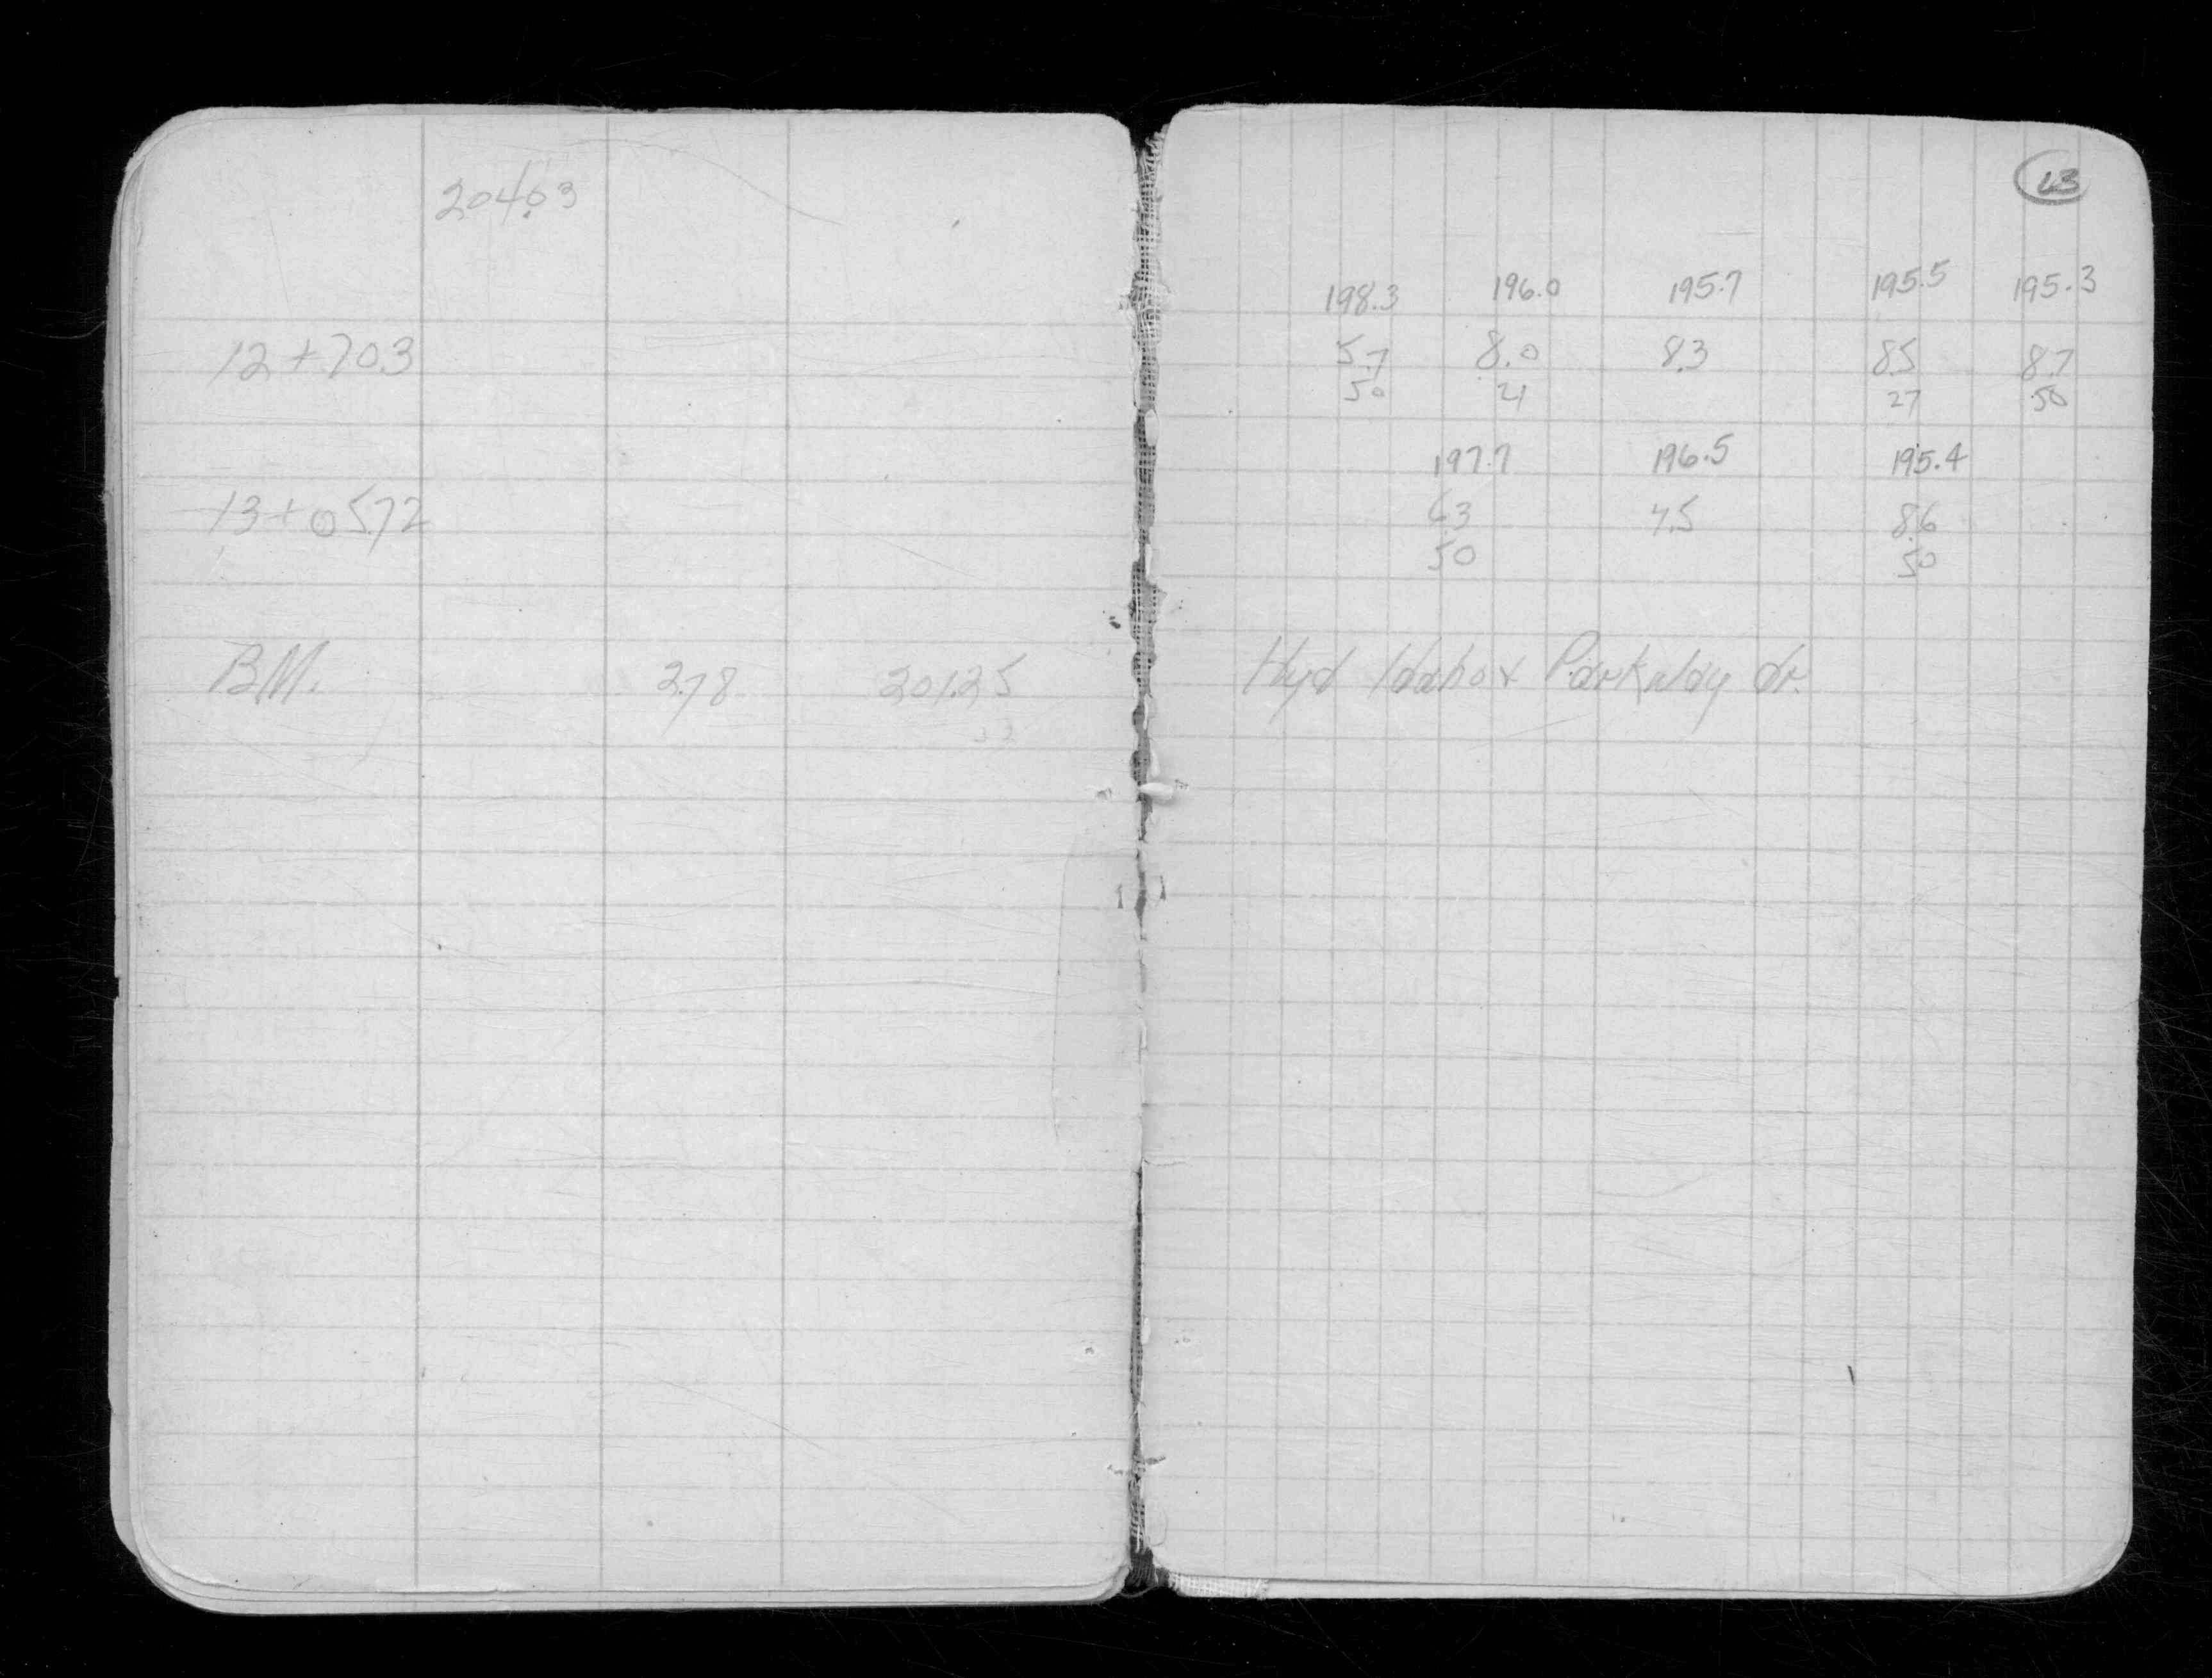 204.03
12+70.3
13+05.72
B.M. 2.78 201.25
63
198.3 196.0 195.7 195.5 195.3
5.7 8.0 8.3 8.5 8.7
50 21 27 50
197.7 196.5 195.4
6.3 7.5 8.6
50 50
Hyd Idaho & Parkway dr.